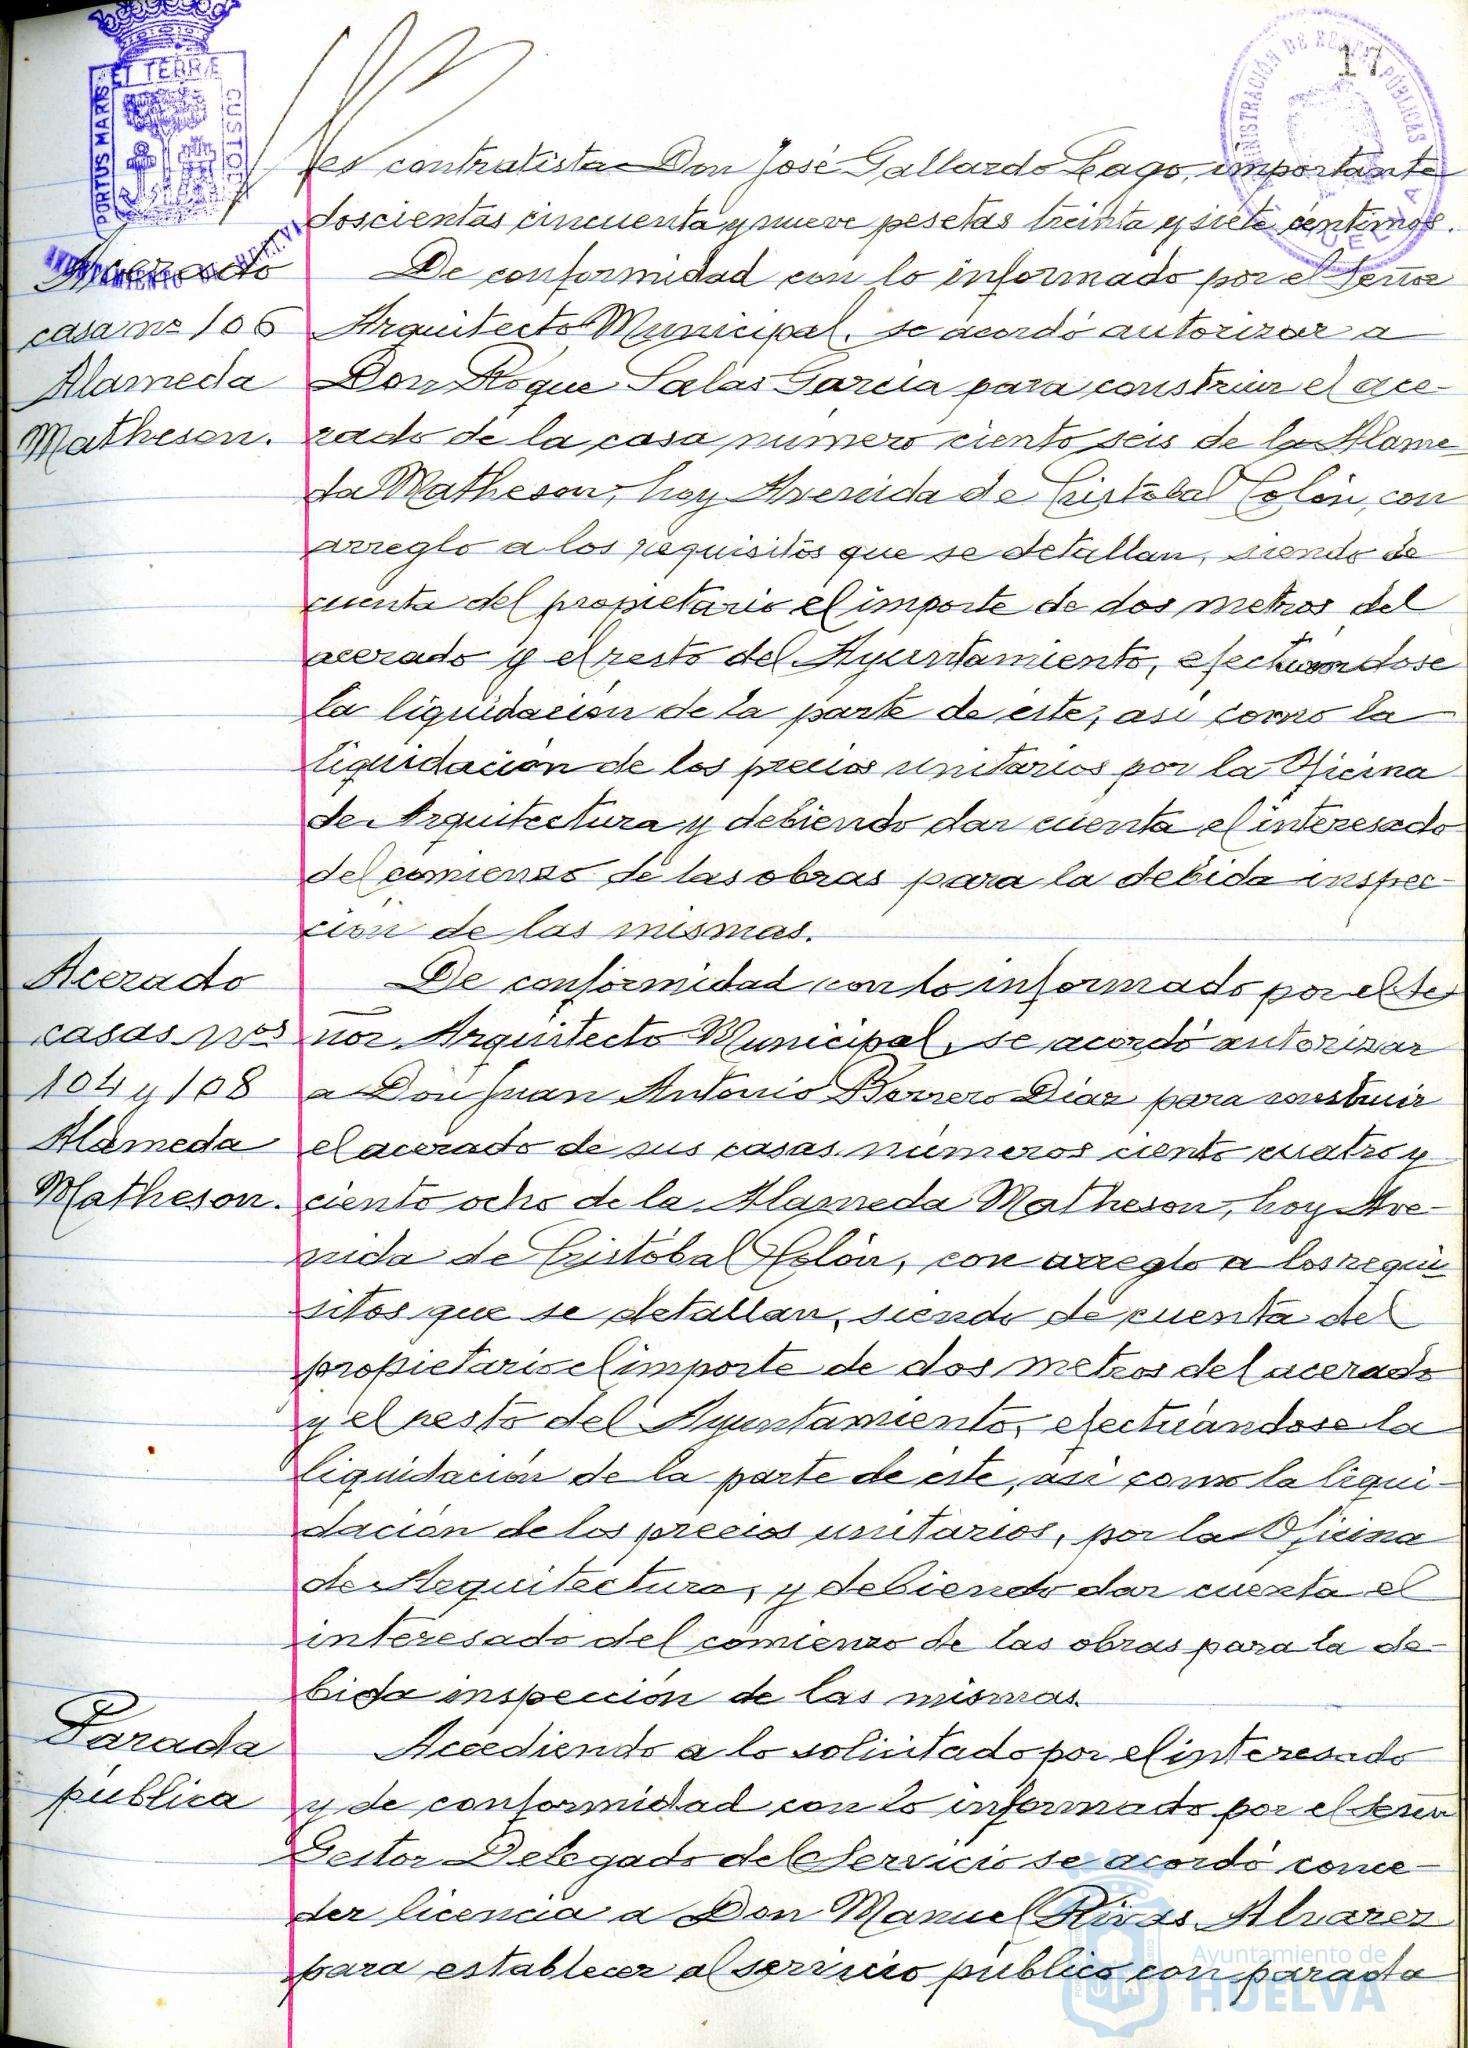 17
PORTUS MARIS ET TERRÆ CUSTODIA
AYUNTAMIENTO DE HUELVA
ADMINISTRACIÓN DE RENTAS PÚBLICAS
HUELVA
es contratista Don José Gallardo Lago, importante
doscientas cincuenta y nueve pesetas treinta y siete céntimos.
Acerado
casa nº 106
Alameda
Matheson.
De conformidad con lo informado por el Señor
Arquitecto Municipal, se acordó autorizar a
Don Roque Salas García para construir el ace-
rado de la casa número ciento seis de la Alame
da Matheson, hoy Avenida de Cristóbal Colón, con
arreglo a los requisitos que se detallan, siendo de
cuenta del propietario el importe de dos metros del
acerado y el resto del Ayuntamiento, efectuándose
la liquidación de la parte de éste, así como la
liquidación de los precios unitarios por la Oficina
de Arquitectura y debiendo dar cuenta el interesado
del comienzo de las obras para la debida inspec-
ción de las mismas.
Acerado
casas nos
104 y 108
Alameda
Matheson.
De conformidad con lo informado por el Se
ñor Arquitecto Municipal, se acordó autorizar
a Don Juan Antonio Borrero Díaz para construir
el acerado de sus casas números ciento cuatro y
ciento ocho de la Alameda Matheson, hoy Ave-
nida de Cristóbal Colón, con arreglo a los requi
sitos que se detallan, siendo de cuenta del
propietario el importe de dos metros del acerado
y el resto del Ayuntamiento, efectuándose la
liquidación de la parte de éste, así como la liqui-
dación de los precios unitarios, por la Oficina
de Arquitectura, y debiendo dar cuenta el
interesado del comienzo de las obras para la de-
bida inspección de las mismas.
Parada
pública
Accediendo a lo solicitado por el interesado
y de conformidad con lo informado por el Señor
Gestor Delegado del Servicio se acordó conce-
der licencia a Don Manuel Rivas Alvarez
para establecer al servicio público con parada
Ayuntamiento de
HUELVA